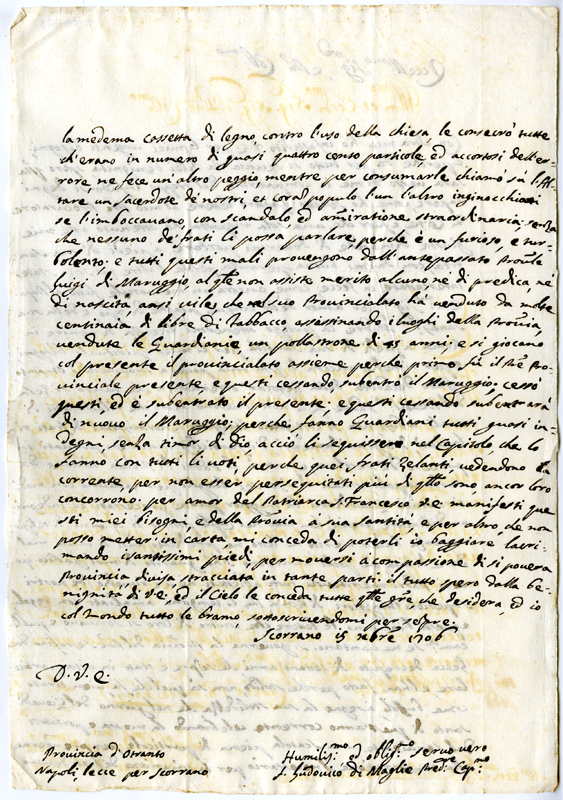 la medema cassetta di legno, contro l'uso della chiesa, le consecrò tutte
ch'erano in numero di quasi quattro cento particole, ed accortosi dell'er-
rore, ne fece un'altro peggio, mentre per consumarle chiamò sù l'Al-
tare un sacerdote de nostri, et coram populo l'un l'altro inginocchiati
se l'imboccavano, con scandalo, ed amiratione straordinaria; senza
che nessuno de frati li possa parlare, perche è un furioso, e tur-
bolento: e tutti questi mali provengono dall'antepassato Prõule
Luigi di Maruggio, al q̃le non assiste merito alcuno, nè di predica, nè
di nascità, ansi vile; che nel suo Provincialato hà venduto da molte
centinaia di libre di Tabbacco, assassinando i luoghi della Prõuia,
vendute le Guardianie, un pollastrone di 45 anni; e si giocano
col presente il provincialato assieme perche primo fù il Prõ Pro-
vinciale presente, e questi cessando subentrò il Maruggio; cessò
questi, ed è subentrato il presente; e questi cessando subentrarà
di nuovo il Maruggio; perche fanno Guardiani tutti quasi in-
degni, senza timor di Dio, acciò li seguissero nel Capitolo, che lo
fanno con tutti li voti, perche quei frati zelanti, vedendono la
corrente, per non esser perseguitati più di q̃llo sono, ancor loro
concorrono: per amor del Patriarca S. Francesco V.E. manifesti que
sti miei bisogni, e della Prõuia à sua santità, e per altro che non
posso metter in carta mi conceda di poterli io baggiare lacri-
mando i santissimi piedi, per moversi à compassione di si povera
Provincia divisa stracciata in tante parti: il tutto spero dalla be-
nignità di V.E., ed il Cielo le conceda tutte q̃lle gr̃e, che desidera, ed io
col Mondo tutto le bramo, sottoscrivendomi per sempre.
Scorrano 15 9bre 1706
D. V. E.
Provincia d'Otranto
Napoli, Lecce per Scorrano
Humilis:mo, ed oblig:mo servo vero
f. Ludovico di Maglie Pred:re Cap:no